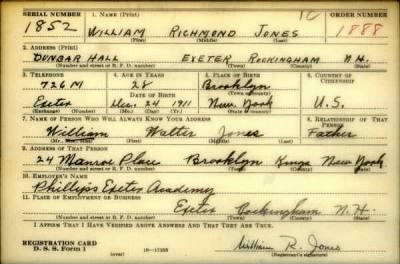 SERIAL NUMBER 1. NAME (Print) ORDER NUMBER
1852 WILLIAM RICHMOND JONES 1888
(First) (Middle) (Last)
2. ADDRESS (Print)
DUNBAR HALL EXETER ROCKINGHAM N.H.
(Number and street or R. F. D. number) (Town) (County) (State)
3. TELEPHONE 4. AGE IN YEARS 5. PLACE OF BIRTH 6. COUNTRY OF CITIZENSHIP
726M 28 Brooklyn
DATE OF BIRTH (Town or county)
Exeter Dec. 24 1911 New York U.S.
(Exchange) (Number) (Mo.) (Day) (Yr.) (State or country)
7. NAME OF PERSON WHO WILL ALWAYS KNOW YOUR ADDRESS 8. RELATIONSHIP OF THAT PERSON
William Walter Jones Father
(First) (Middle) (Last)
9. ADDRESS OF THAT PERSON
24 Monroe Place Brooklyn Kings New York
(Number and street or R. F. D. number) (Town) (County) (State)
10. EMPLOYER'S NAME
Phillips Exeter Academy
11. PLACE OF EMPLOYMENT OR BUSINESS
Exeter Rockingham N.H.
(Number and street or R. F. D. number) (Town) (County) (State)
I AFFIRM THAT I HAVE VERIFIED ABOVE ANSWERS AND THAT THEY ARE TRUE.
REGISTRATION CARD
D. S. S. Form 1 (over) 16-17105 William R. Jones